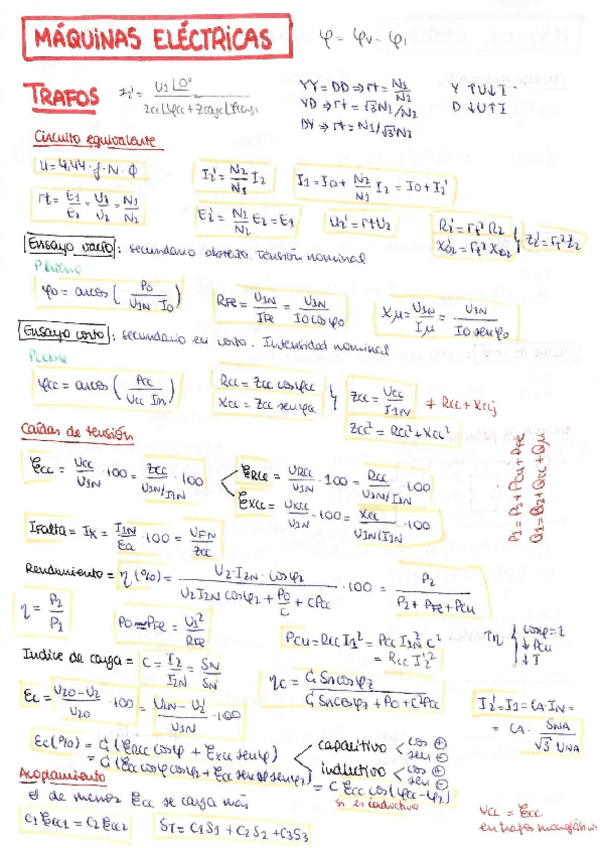 MÁQUINAS ELÉCTRICAS
φ = φv - φi
TRAFOS
YY = DD ⇒ rt = N1/N2
YD ⇒ rt = √3 N1/N2
DY ⇒ rt = N1/√3 N2
Y ↑U↓I
D ↓U↑I
Circuito equivalente
U = 4,44 · f · N · Φ
I2' = N2/N1 I2
I1 = I0 + N2/N1 I2 = I0 + I2'
rt = E1/E2 = U1/U2 = N1/N2
E2' = N1/N2 E2 = E1
U2' = rt U2
R2' = rt² R2
X2' = rt² X2
Z2' = rt² Z2
Ensayo vacío: secundario abierto. Tensión nominal
φ0 = arcos (P0 / U1N I0)
RFE = U1N/IFe = U1N/I0 cosφ0
Xμ = U1N/Iμ = U1N/I0 senφ0
Ensayo corto: secundario en corto. Intensidad nominal
φcc = arcos (Pcc / Ucc I1n)
Rcc = Zcc cosφcc
Xcc = Zcc senφcc
Zcc = Ucc/I1N
≠ Rcc + Xccj
Zcc² = Rcc² + Xcc²
Caídas de tensión
Ecc = Ucc/U1N · 100 = Zcc/U1N/I1N · 100
ERcc = URcc/U1N · 100 = Rcc/U1N/I1N · 100
EXcc = UXcc/U1N · 100 = Xcc/U1N/I1N · 100
P1 = P2 + Pcu + PFE
Q1 = Q2 + Qcc + Qμ
Ifalta = Ik = I1N/Ecc · 100 = UFN/Zcc
Rendimiento = η (%) = U2 · I2N · cosφ2 / U2 I2N cosφ2 + P0/C + CPcc · 100 = P2 / P2 + PFE + Pcu
η = P2/P1
P0 = PFe = U1²/RFE
Pcu = Rcc I1² = Pcc I1N² C²
= Rcc I2'²
↑η { cosφ=1
↓Pcu
↓I
Indice de carga = C = I2/I2N = SN/SN
ηc = C Sn cosφ2 / C Sn cosφ2 + P0 + C²Pcc
Ec = U20 - U2 / U20 · 100 = U1N - U2' / U1N · 100
I2' = I1 = CA · IN =
= CA · SNA / √3 UNA
Ec(%) = C (ERcc cosφ + EXcc senφ)
= C (Ecc cosφ cosφ2 + Ecc senφ senφ2)
= C Ecc cos(φcc - φ2)
capacitivo < cos ⊕
sen ⊖
inductivo < cos ⊕
sen ⊕
si es inductivo
Acoplamiento
el de menor Ecc se carga más
C1 Ecc1 = C2 Ecc2
ST = C1S1 + C2S2 + C3S3
Ucc = Ecc
en trafos monofásicos